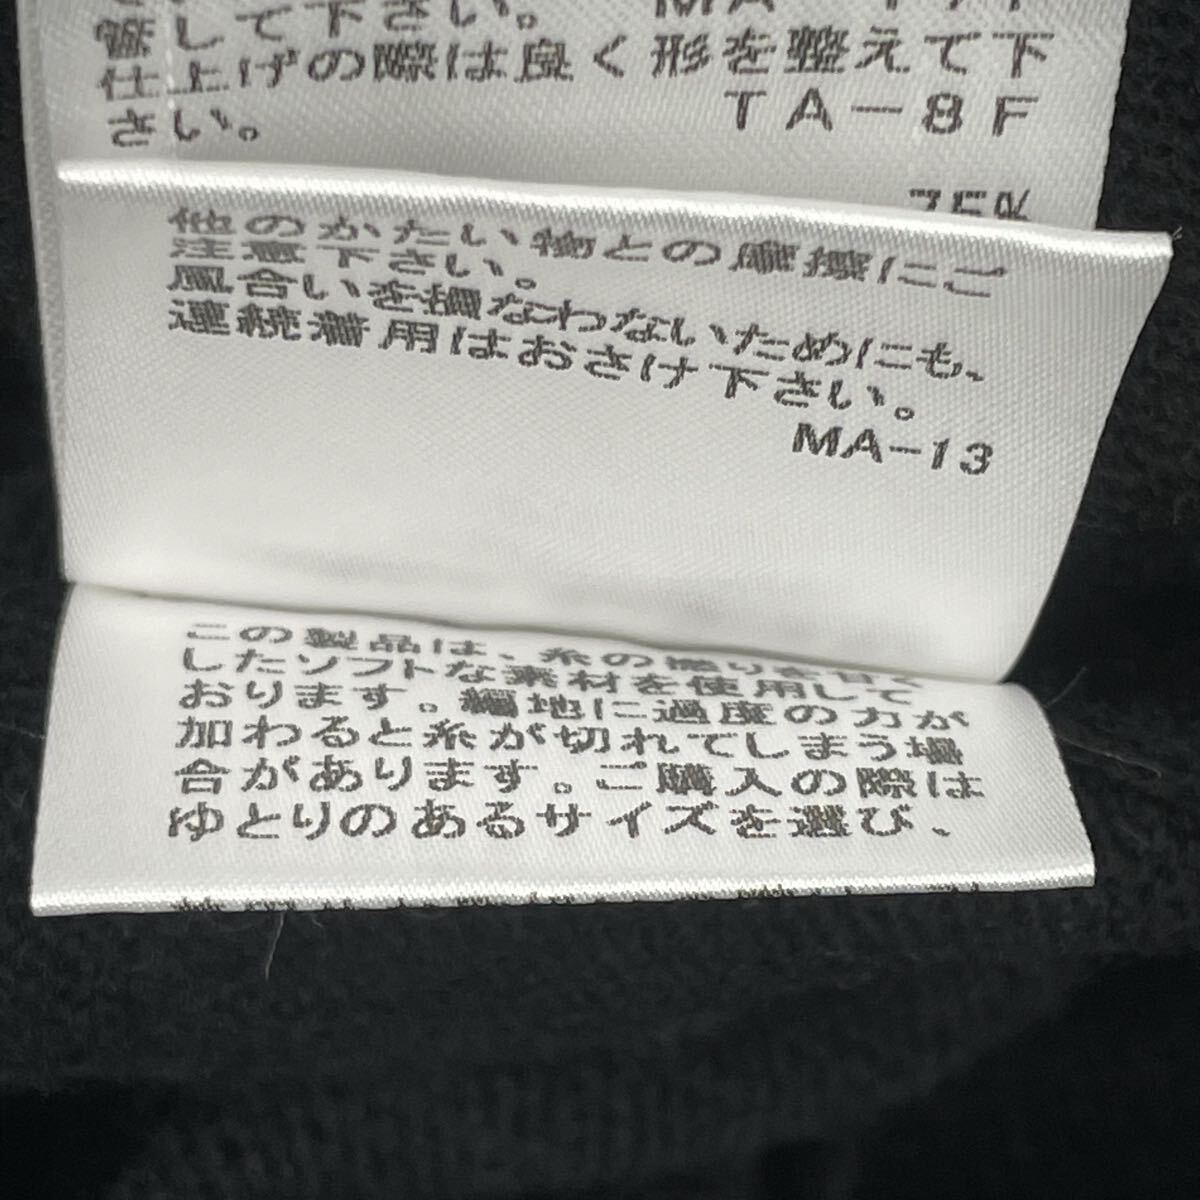 管して下さい。
仕上げの際は良く形を整えて下
さい。 TA-8F
75%
他のかたい物との摩擦にご
注意下さい。
風合いを損なわないためにも、
連続着用はおさけ下さい。
MA-13
この製品は、糸の撚りを甘く
したソフトな素材を使用して
おります。編地に過度の力が
加わると糸が切れてしまう場
合があります。ご購入の際は
ゆとりのあるサイズを選び、